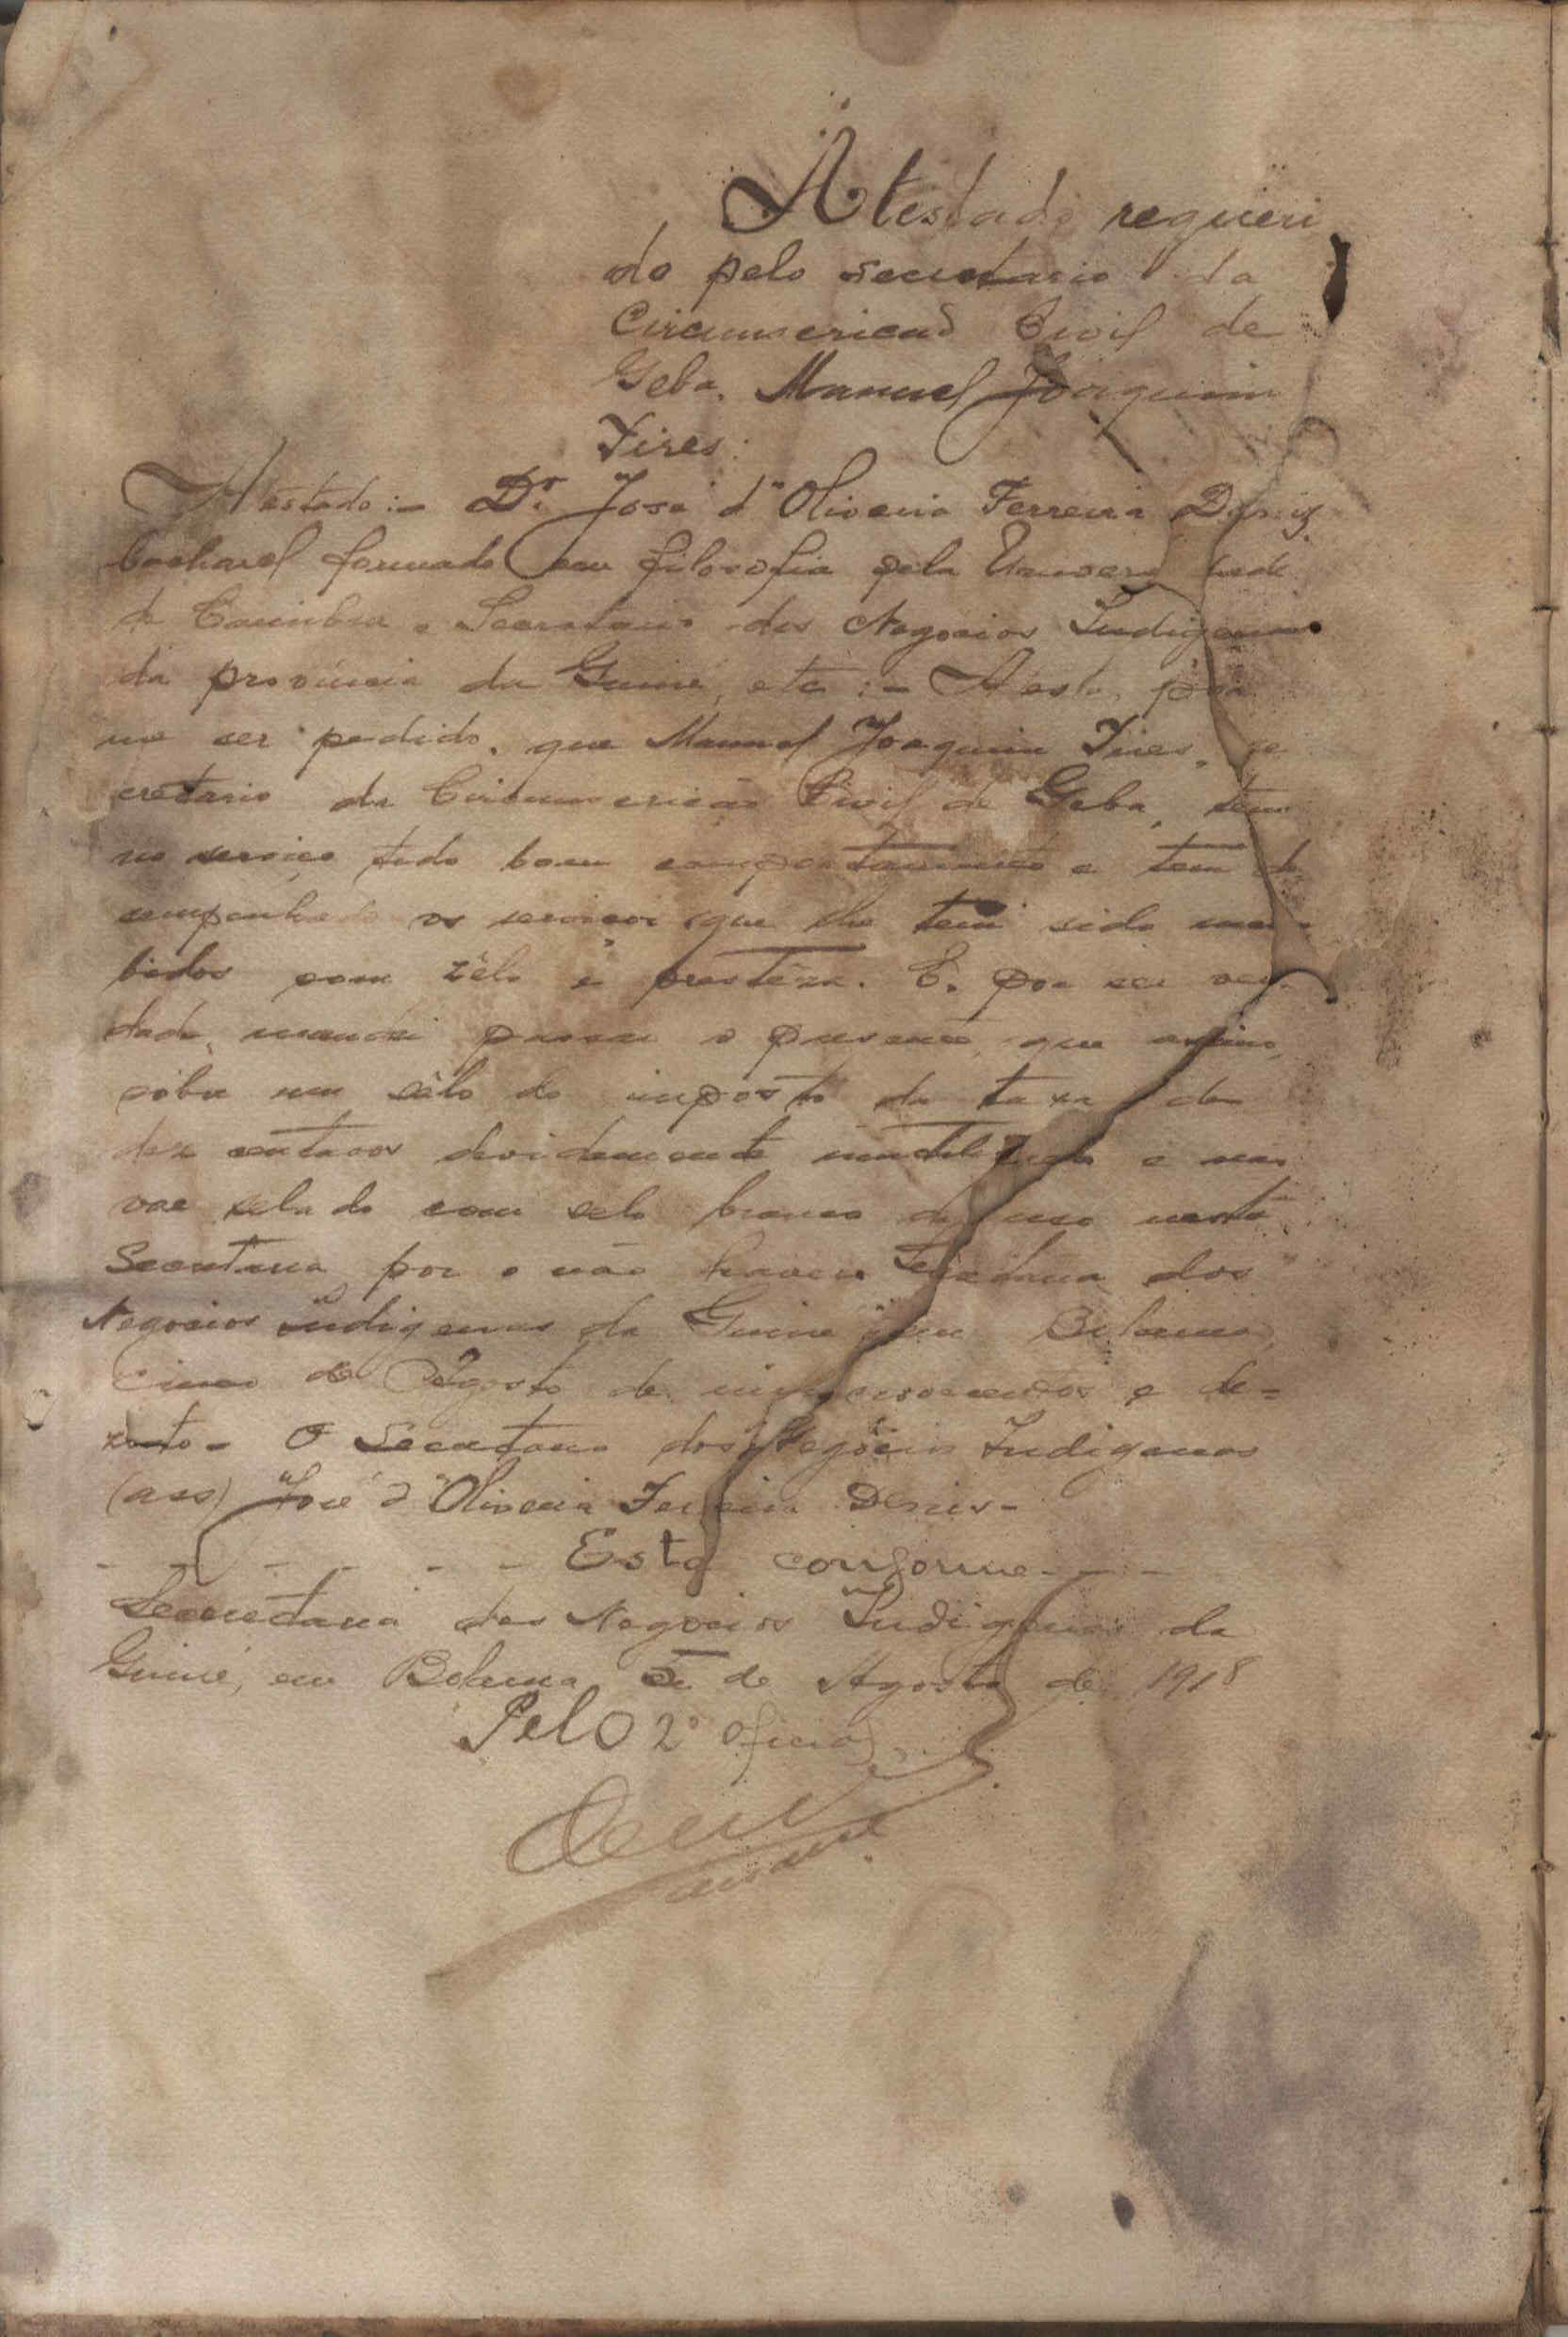 Atestado requeri
do pelo secretario da
Circunscricaõ Civil de
Geba, Manuel Joaquim
Pires:
Atestado:- Dr. José d'Oliveira Ferreira Diniz
bacharel formado em filosofia pela Univers dade
de Coimbra e Secretario dos Negocios Indigenas
da provincia da Guiné, etc:- Atesto, por
me ser pedido, que Manuel Joaquim Pires, se
cretario da Circunscrição Civil de Geba, tem
no serviço tido bom comportamento e tem de
sempenhado os serviços que lhe tem sido incum
bidos com zêlo e prestêza. E, por ser ver
dade, mandei passar o presente, que assino
sôbre um sêlo do imposto da taxa de
dez centavos devidamente inutilizado e não
vae selado com selo branco de uso nesta
Secretaria por o não haver. Secretaria dos
Negocios Indigenas da Guiné em Bolama,
cinco de Agosto de mil novecentos e de-
zoito- O Secretario dos Negócios Indigenas
(ass) José d'Oliveira Ferreira Diniz-
Está conforme
Secretaria dos Negocios Indigenas da
Guiné, em Bolama, de Agosto de 1918
Pelo 2º oficial